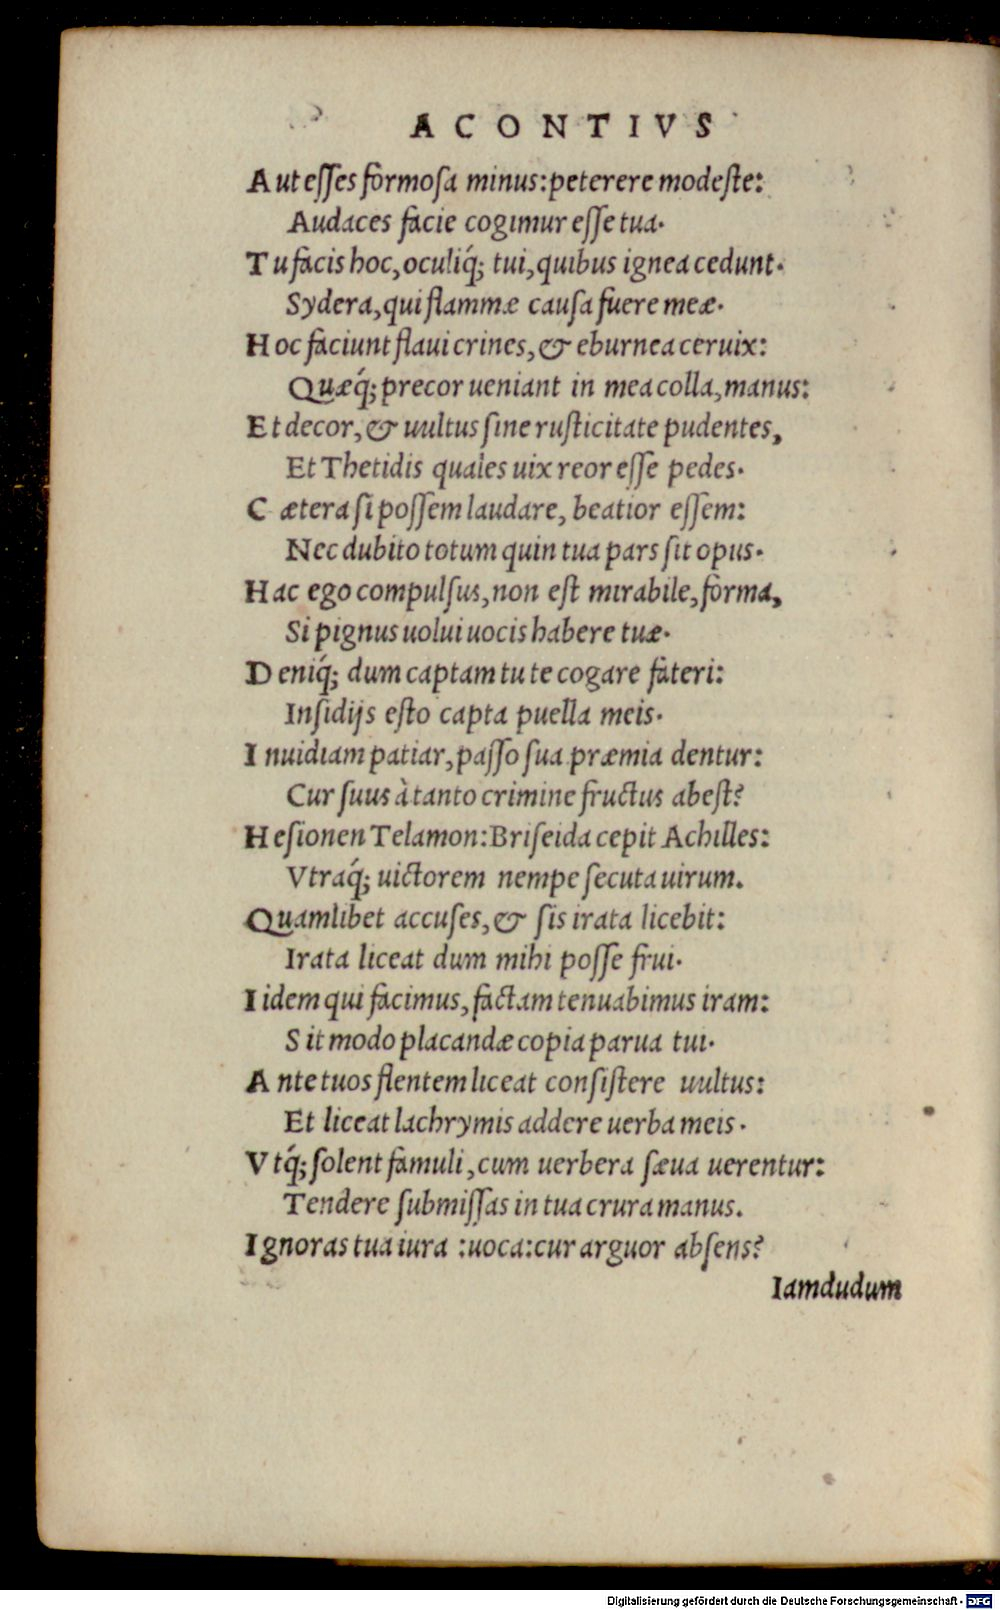 ACONTIVS
Aut esses formosa minus: peterere modeste:
Audaces facie cogimur esse tua.
Tu facis hoc, oculiq́; tui, quibus ignea cedunt.
Sydera, qui flammæ causa fuere meæ.
Hoc faciunt flaui crines, & eburnea ceruix:
Quæq́; precor ueniant in mea colla, manus:
Et decor, & uultus sine rusticitate pudentes,
Et Thetidis quales uix reor esse pedes.
Cætera si possem laudare, beatior essem:
Nec dubito totum quin tua pars sit opus.
Hac ego compulsus, non est mirabile, forma,
Si pignus uolui uocis habere tuæ.
Deniq́; dum captam tu te cogare fateri:
Insidijs esto capta puella meis.
Inuidiam patiar, passo sua præmia dentur:
Cur suus à tanto crimine fructus abest?
Hesionen Telamon: Briseida cepit Achilles:
Vtraq́; uictorem nempe secuta uirum.
Quamlibet accuses, & sis irata licebit:
Irata liceat dum mihi posse frui.
Iidem qui facimus, factam tenuabimus iram:
Sit modo placandæ copia parua tui.
Ante tuos flentem liceat consistere uultus:
Et liceat lachrymis addere uerba meis.
Vtq́; solent famuli, cum uerbera sæua uerentur:
Tendere submissas in tua crura manus.
Ignoras tua iura : uoca: cur arguor absens?
Iamdudum
Digitalisierung gefördert durch die Deutsche Forschungsgemeinschaft - DFG